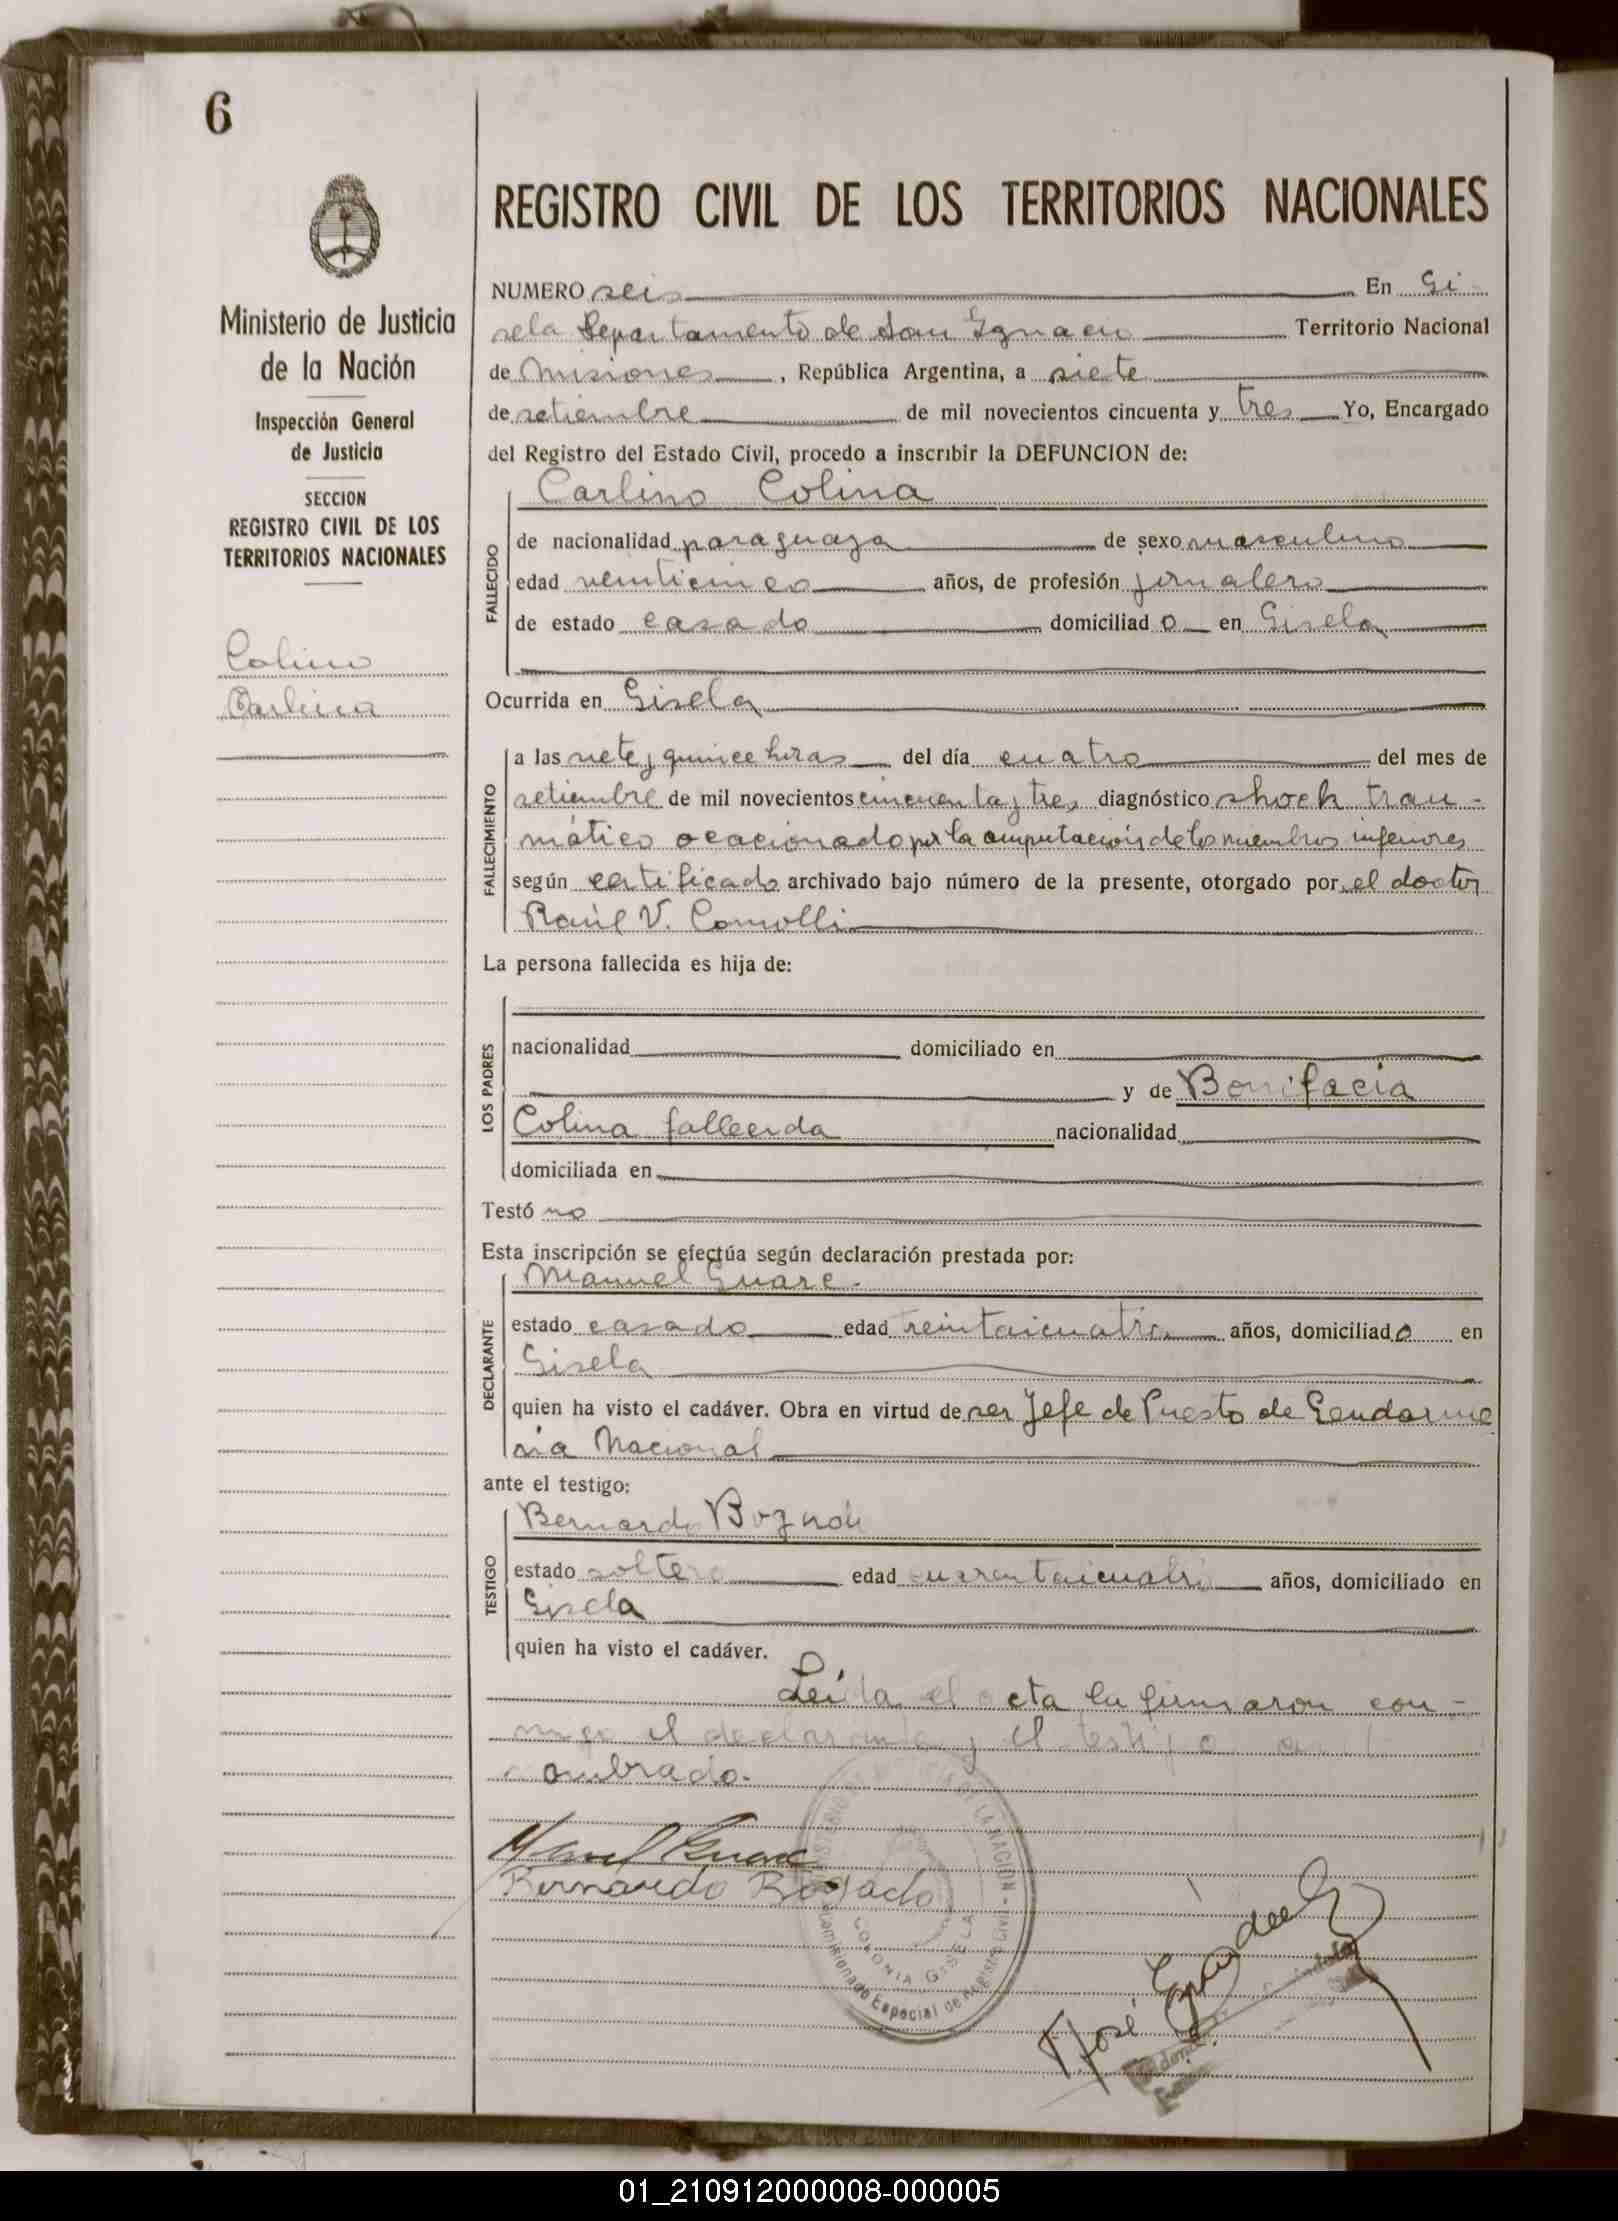 6
Ministerio de Justicia
de la Nación
Inspección General
de Justicia
SECCION
REGISTRO CIVIL DE LOS
TERRITORIOS NACIONALES
Colina
REGISTRO CIVIL DE LOS TERRITORIOS NACIONALES
NUMERO seis En Gi-
sela Departamento de San Ignacio Territorio Nacional
de Misiones, República Argentina, a siete
de setiembre de mil novecientos cincuenta y tres Yo, Encargado
del Registro del Estado Civil, procedo a inscribir la DEFUNCION de:
FALLECIDO
Carlino Colina
de nacionalidad paraguaya de sexo masculino
edad veinticinco años, de profesión jornalero
de estado casado domiciliado en Gisela
Ocurrida en Gisela
FALLECIMIENTO
a las siete y quince horas del día cuatro del mes de
setiembre de mil novecientos cincuenta y tres diagnóstico shock trau-
mático ocacionado por la amputación de los miembros inferiores
según certificado archivado bajo número de la presente, otorgado por el doctor
Raúl V. Comolli
La persona fallecida es hija de:
LOS PADRES
nacionalidad domiciliado en
y de Bonifacia
Colina fallecida nacionalidad
domiciliada en
Testó no
Esta inscripción se efectúa según declaración prestada por:
DECLARANTE
Manuel Guare.
estado casado edad treintaicuatro años, domiciliado en
Gisela
quien ha visto el cadáver. Obra en virtud de ser Jefe de Puesto de Gendarme
ria Nacional
ante el testigo:
TESTIGO
Bernardo
estado soltero edad cuarentaicuatro años, domiciliado en
Gisela
quien ha visto el cadáver.
Leida el acta la firmaron con-
migo el declarante y el testigo
nombrado.
Manuel Guare
Bernardo Bogado
MINISTERIO DE JUSTICIA DE LA NACION
COLONIA GISELA
Comisionado Especial de Registro Civil
José
01_210912000008-000005